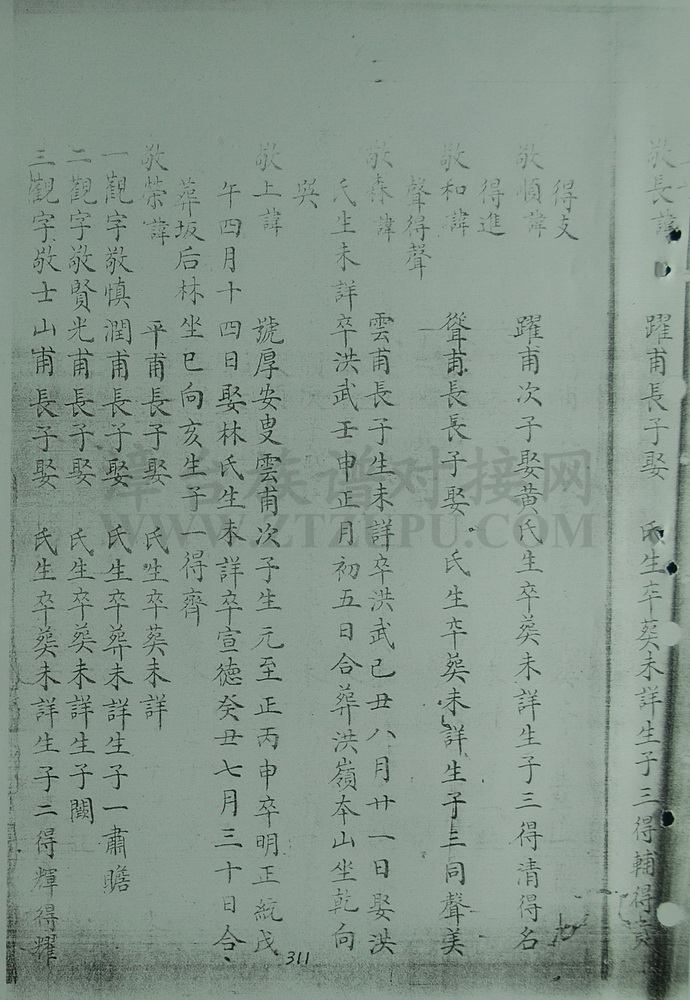 敬長諱 躍甫長子娶 氏生卒葬未詳生子三得輔得
得支
敬慎諱 躍甫次子娶黃氏生卒葬未詳生子三得清得名
得進
敬和諱 聳甫長長子娶 氏生卒葬未詳生子三同聲美
聲得聲
敬森諱 雲甫長子生未詳卒洪武己丑八月廿一日娶洪
氏生未詳卒洪武壬申正月初五日合葬洪嶺本山坐乾向
巽
敬上諱 號厚安叟雲甫次子生元至正丙申卒明正統戊
午四月十四日娶林氏生未詳卒宣德癸丑七月三十日合
葬坂后林坐巳向亥生子一得齊
敬榮諱 平甫長子娶 氏生卒葬未詳
一觀字敬慎潤甫長子娶 氏生卒葬未詳生子一肅瞻
二觀字敬賢光甫長子娶 氏生卒葬未詳生子闕
三觀字敬士山甫長子娶 氏生卒葬未詳生子二得輝得耀
311
漳台族谱对接网
WWW.ZTZUPU.COM